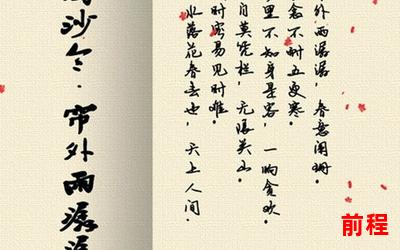 沙令·帘外雨潺
外雨潺潺，春意阑珊。
衾不耐五更寒。
里不知身是客，一晌贪欢。
自莫凭栏，无限关山。
时容易见时难。
水落花春去也，天上人间。
前程